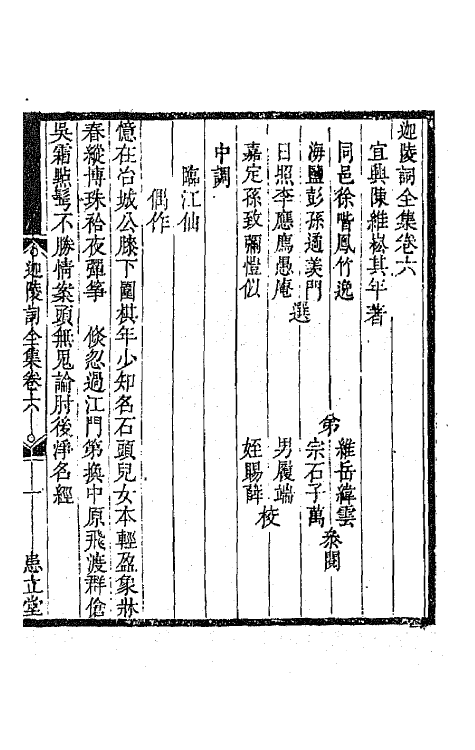 迦陵詞全集卷六
宜興陳維崧其年著
同邑徐喈鳳竹逸
海鹽彭孫遹羨門
日照李應廌愚庵
嘉定孫致彌愷似
選
弟
維岳緯雲
宗石子萬
叅閱
男履端
姪賜薛
校
中調
臨江仙
偶作
憶在冶城公膝下圍棋年少知名石頭兒女本輕盈象牀
春縱博珠袷夜彈箏 倏忽過江門第換中原飛渡群傖
吳霜㸃鬢不勝情案頭無鬼論肘後淨名經
迦陵詞全集卷六
一
患立堂